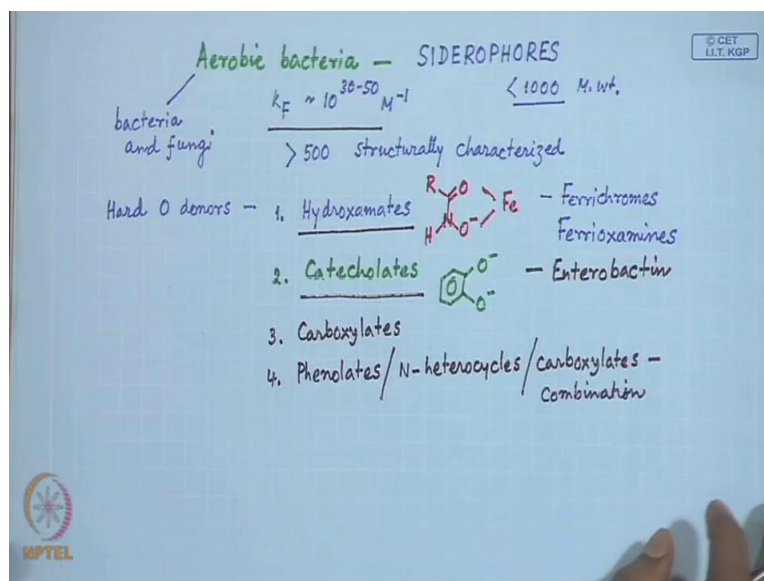 Aerobic bacteria – SIDEROPHORES
© CET
I.I.T. KGP
bacteria and fungi
K_F ~ 10^30-50 M^-1
< 1000 M.Wt.
> 500 structurally characterized
Hard O donors – 1. Hydroxamates
R O
N O^-
H
Fe
– Ferrichromes
Ferrioxamines
2. Catecholates
O^-
O^-
– Enterobactin
3. Carboxylates
4. Phenolates/N-heterocycles/carboxylates –
combination
NPTEL